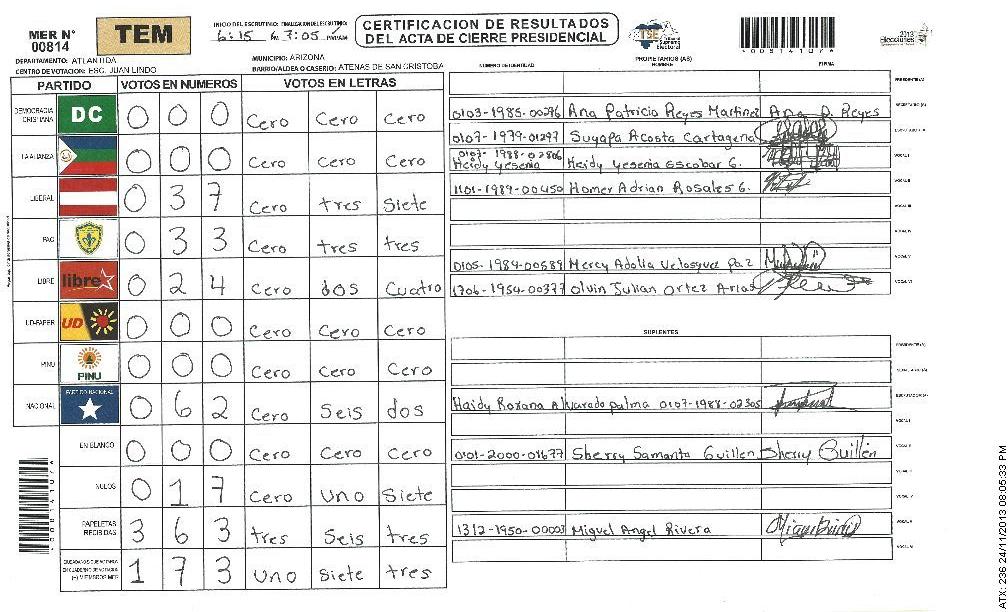 MER N° 00814
TEM
INICIO DEL ESCRUTINIO: FINALIZACION DEL ESCRUTINIO:
6:15 7:05 PM/AM
CERTIFICACION DE RESULTADOS
DEL ACTA DE CIERRE PRESIDENCIAL
TSE Tribunal Supremo Electoral
2013 elecciones
DEPARTAMENTO: ATLANTIDA
MUNICIPIO: ARIZONA
CENTRO DE VOTACION: ESC. JUAN LINDO
BARRIO/ALDEA O CASERIO: ATENAS DE SAN CRISTOBA
PARTIDO VOTOS EN NUMEROS VOTOS EN LETRAS
DEMOCRACIA CRISTIANA DC 0 0 0 Cero Cero Cero
LA ALIANZA 0 0 0 Cero Cero Cero
LIBERAL 0 3 7 Cero tres Siete
PAC 0 3 3 Cero tres tres
LIBRE libre 0 2 4 Cero dos Cuatro
UD-FAPER UD 0 0 0 Cero Cero Cero
PINU PINU 0 0 0 Cero Cero Cero
NACIONAL PARTIDO NACIONAL 0 6 2 Cero Seis dos
EN BLANCO 0 0 0 Cero Cero Cero
NULOS 0 1 7 Cero Uno Siete
PAPELETAS RECIBIDAS 3 6 3 tres Seis tres
(+) MIEMBROS MER 1 7 3 Uno Siete tres
NUMERO DE IDENTIDAD PROPIETARIOS (AS) NOMBRE FIRMA
PRESIDENTE (A)
0103-1985-00296 Ana Patricia Reyes Martinez Ana P. Reyes SECRETARIO (A)
0107-1979-01297 Suyapa Acosta Cartagena ESCRUTADOR (A)
0107-1988-02806 Heidy Yesenia Heidy Yesenia Escobar G. VOCAL I
1101-1989-00450 Homer Adrian Rosales G. VOCAL II
VOCAL III
VOCAL IV
0105-1984-00589 Mercy Adolia Velasquez Paz VOCAL V
1706-1954-00377 Olvin Julian Ortez Arias VOCAL VI
SUPLENTES
PRESIDENTE (A)
SECRETARIO (A)
Haidy Roxana Alvarado Palma 0107-1988-02305 ESCRUTADOR (A)
VOCAL I
0101-2000-01677 Sherry Samanta Guillen Sherry Guillén VOCAL II
VOCAL III
VOCAL IV
1312-1950-00003 Miguel Angel Rivera VOCAL V
VOCAL VI
ATX: 236 24/11/2013 08:05:33 PM